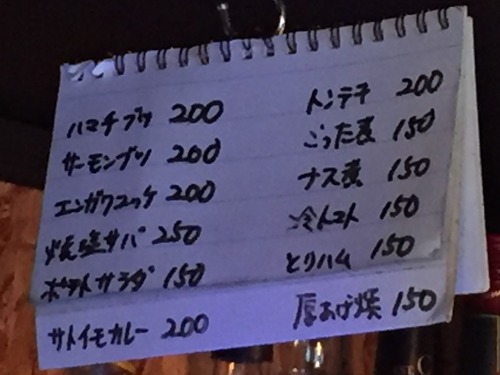 ハマチブツ 200
サーモンブツ 200
エンガワユッケ 200
焼塩サバ 250
ポテトサラダ 150
サトイモカレー 200
トンテキ 200
ごった煮 150
ナス煮 150
冷トマト 150
とりハム 150
厚あげ焼 150